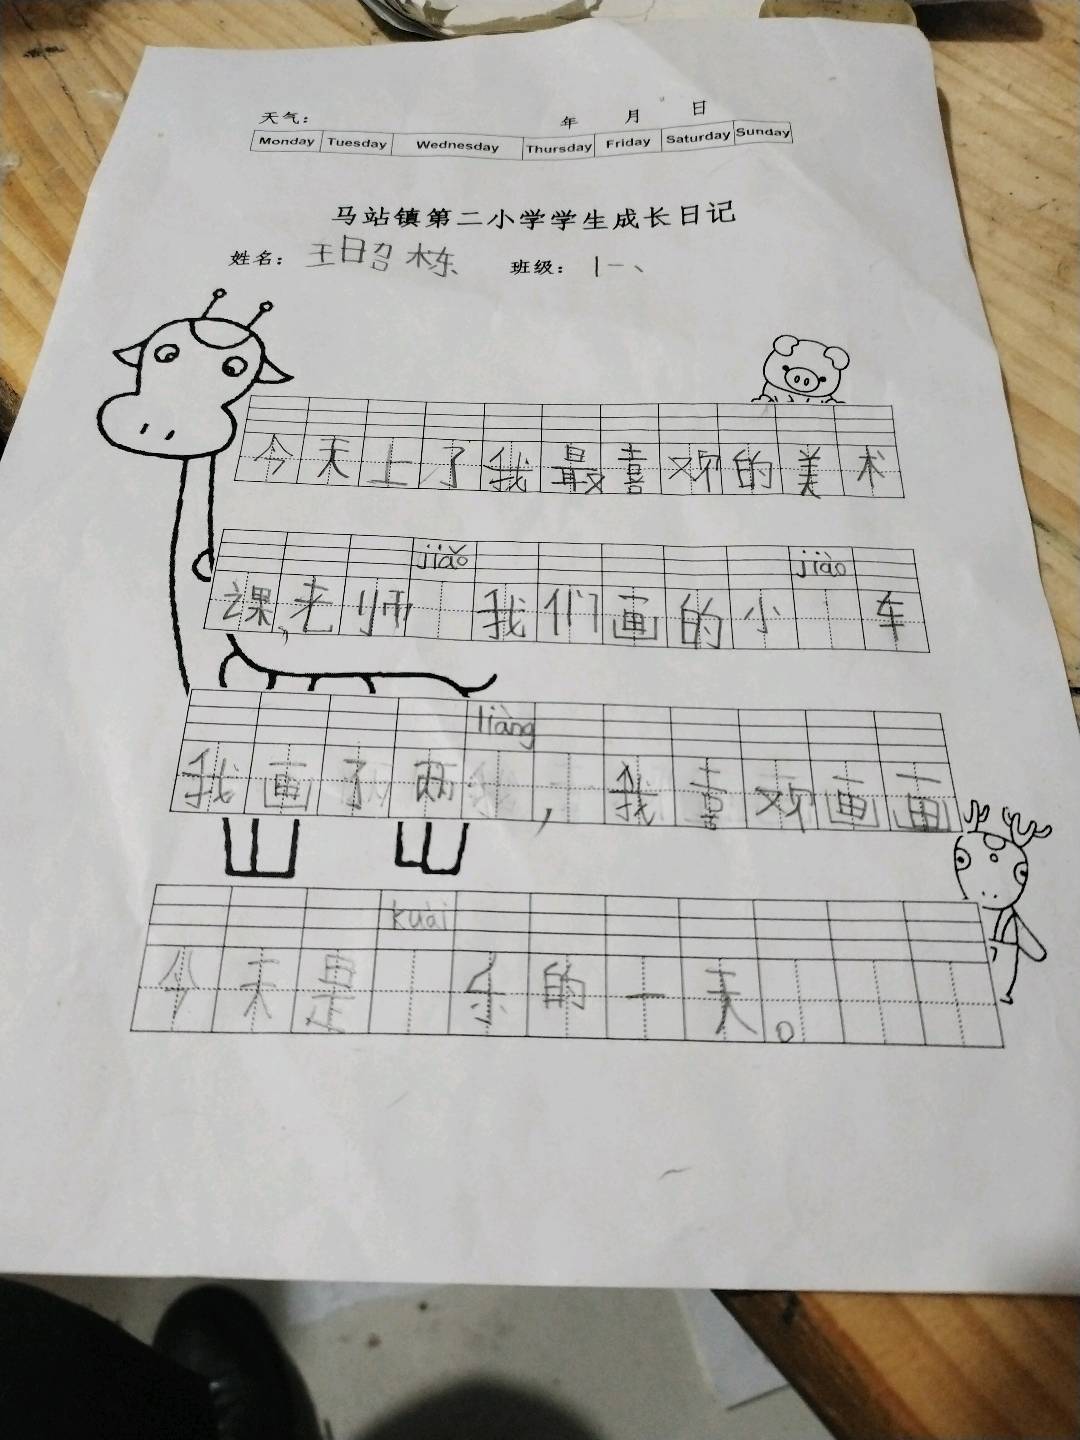 天气： 年 月 日
Monday Tuesday Wednesday Thursday Friday Saturday Sunday
马站镇第二小学学生成长日记
姓名： 王昭栋 班级： 1一、
今天上了我最喜欢的美术
jiǎo jiào
课，老师 我们画的小 车
liàng
我画了两 ，我喜欢画画
kuài
今天是 乐的一天。